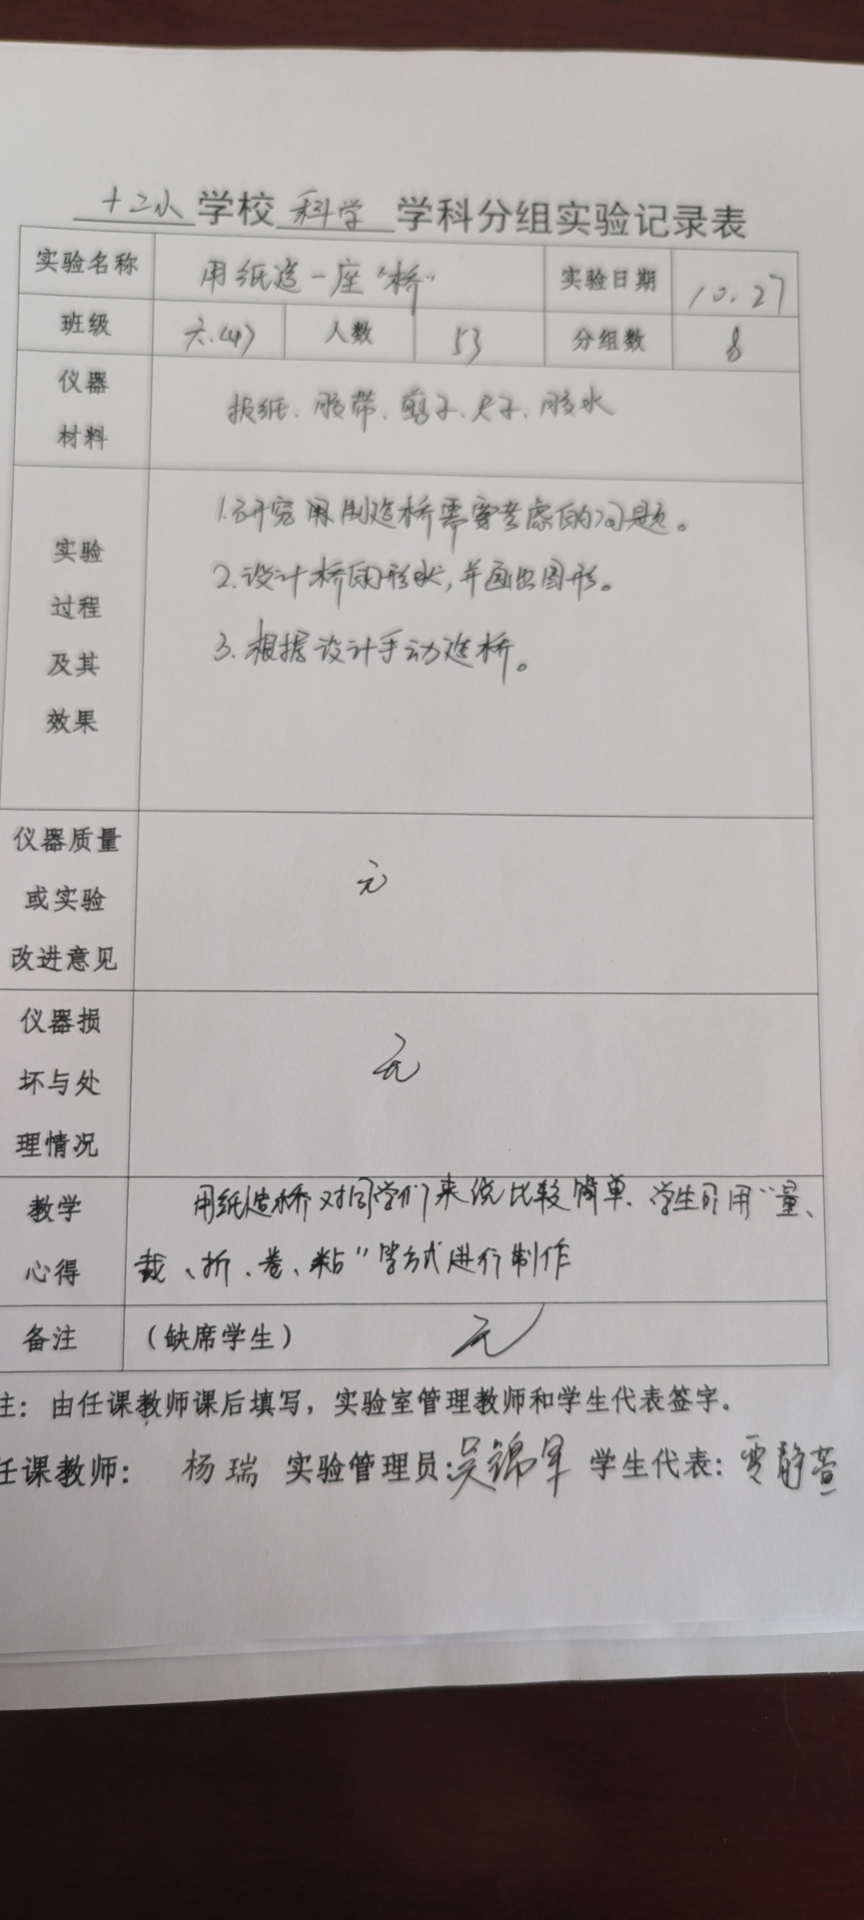 十二小学校科学学科分组实验记录表
实验名称 用纸造一座“桥” 实验日期 10.27
班级 六.(4) 人数 53 分组数 8
仪器
材料
报纸、胶带、剪子、尺子、胶水
实验
过程
及其
效果
1.研究用制造桥需要考虑的问题。
2.设计桥的形状,并画出图形。
3.根据设计手动造桥。
仪器质量
或实验
改进意见
无
仪器损
坏与处
理情况
无
教学
心得
用纸造桥对同学们来说比较简单、学生可用“量、
裁、折、卷、粘”等方式进行制作
备注 (缺席学生) 无
注: 由任课教师课后填写,实验室管理教师和学生代表签字。
任课教师: 杨瑞 实验管理员:吴锦军 学生代表: 静萱